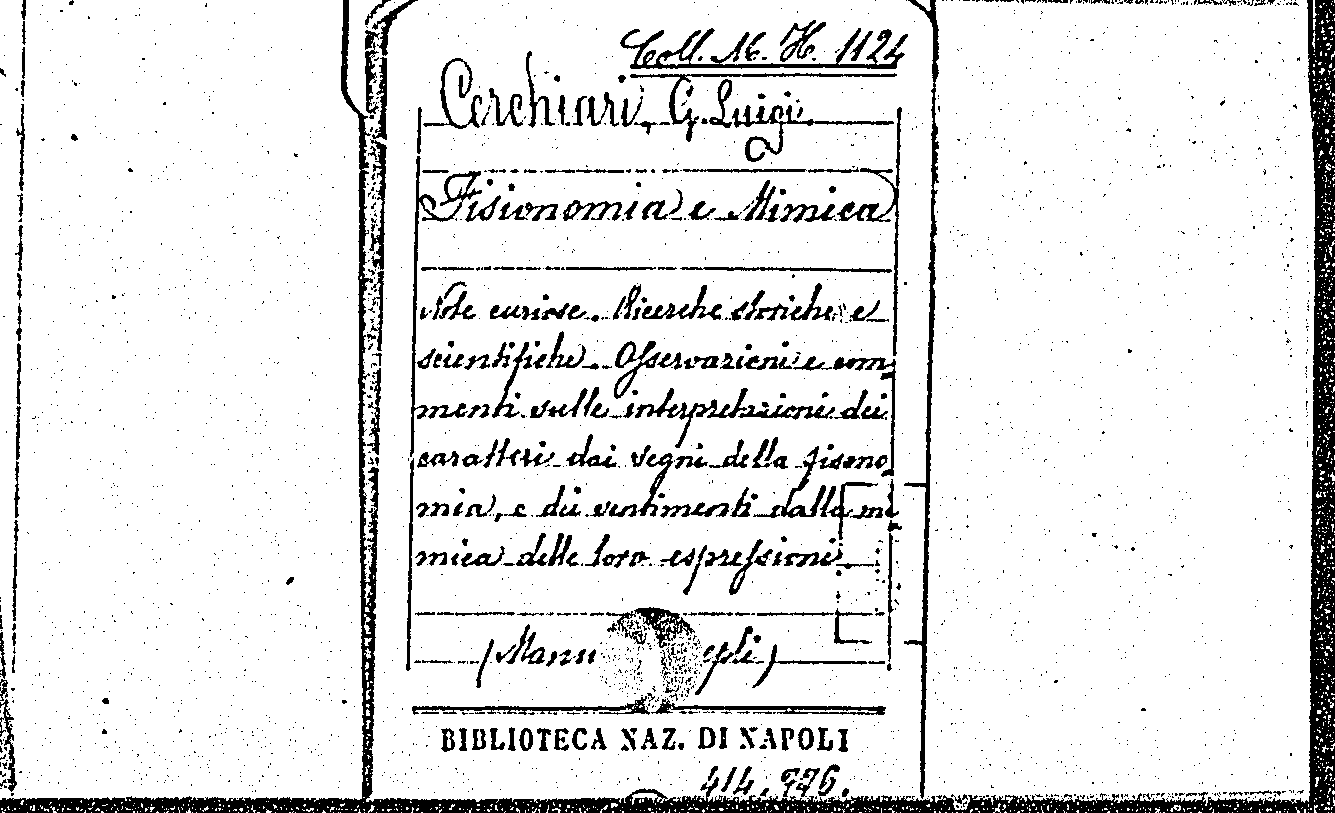 Coll. M. H. 1124
Cerchiari, G. Luigi.
Fisionomia e Mimica
Note curiose. Ricerche storiche e
scientifiche. Osservazioni e com
menti sulle interpretazioni dei
caratteri dai segni della fisono
mia, e dei sentimenti dalla mi
mica delle loro espressioni.
(Manu epli)
BIBLIOTECA NAZ. DI NAPOLI